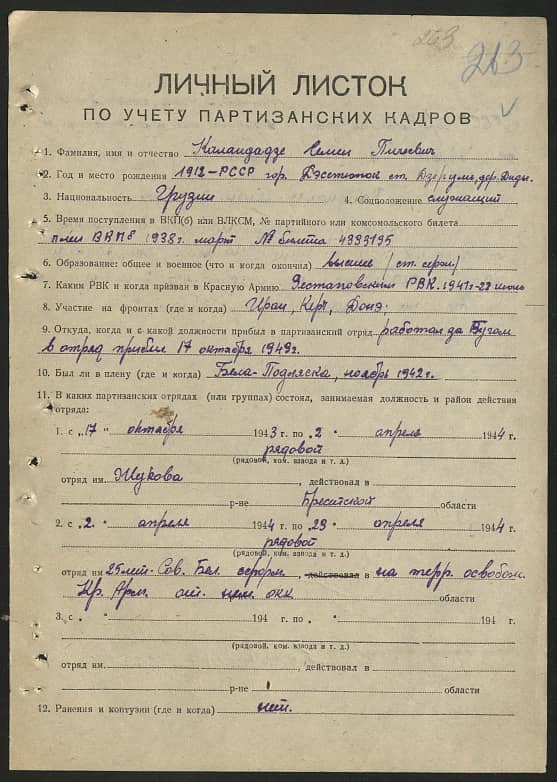 263
263
ЛИЧНЫЙ ЛИСТОК
ПО УЧЕТУ ПАРТИЗАНСКИХ КАДРОВ
1. Фамилия, имя и отчество Каландадзе Семен
2. Год и место рождения 1912 - ГССР гор. ст. дер.
3. Национальность Грузин 4. Соцположение служащий
5. Время поступления в ВКП(б) или ВЛКСМ, № партийного или комсомольского билета
член ВКПб 1938 г. март № билета 4393195
6. Образование: общее и военное (что и когда окончил) высшее
7. Каким РВК и когда призван в Красную Армию РВК. 1941 г - 22 июня
8. Участие на фронтах (где и когда) Иран, Керч,
9. Откуда, когда и с какой должности прибыл в партизанский отряд работал за Бугом
в отряд прибыл 17 октября 1943 г.
10. Был ли в плену (где и когда) Бела-Подляска, ноябрь 1942 г.
11. В каких партизанских отрядах (или группах) состоял, занимаемая должность и район действия
отряда:
1. с „17 " октября 1943 г. по „2 " апрель 1944 г.
рядовой
(рядовой, ком. взвода и т. д.)
отряд им. Жукова, действовал в
р-не Брестской области
2. с „2. " апреля 1944 г. по „29 " апреля 1944 г.
рядовой
(рядовой, ком. взвода и т. д.)
отряд им. 25 лет. Сов. Бел. действовал в на терр. освобож.
Кр. Арм. от. нем. окк области
3. с „ " 194 г. по „ " 194 г.
(рядовой, ком. взвода и т. д.)
отряд им. , действовал в
р-не области
12. Ранения и контузии (где и когда) нет.